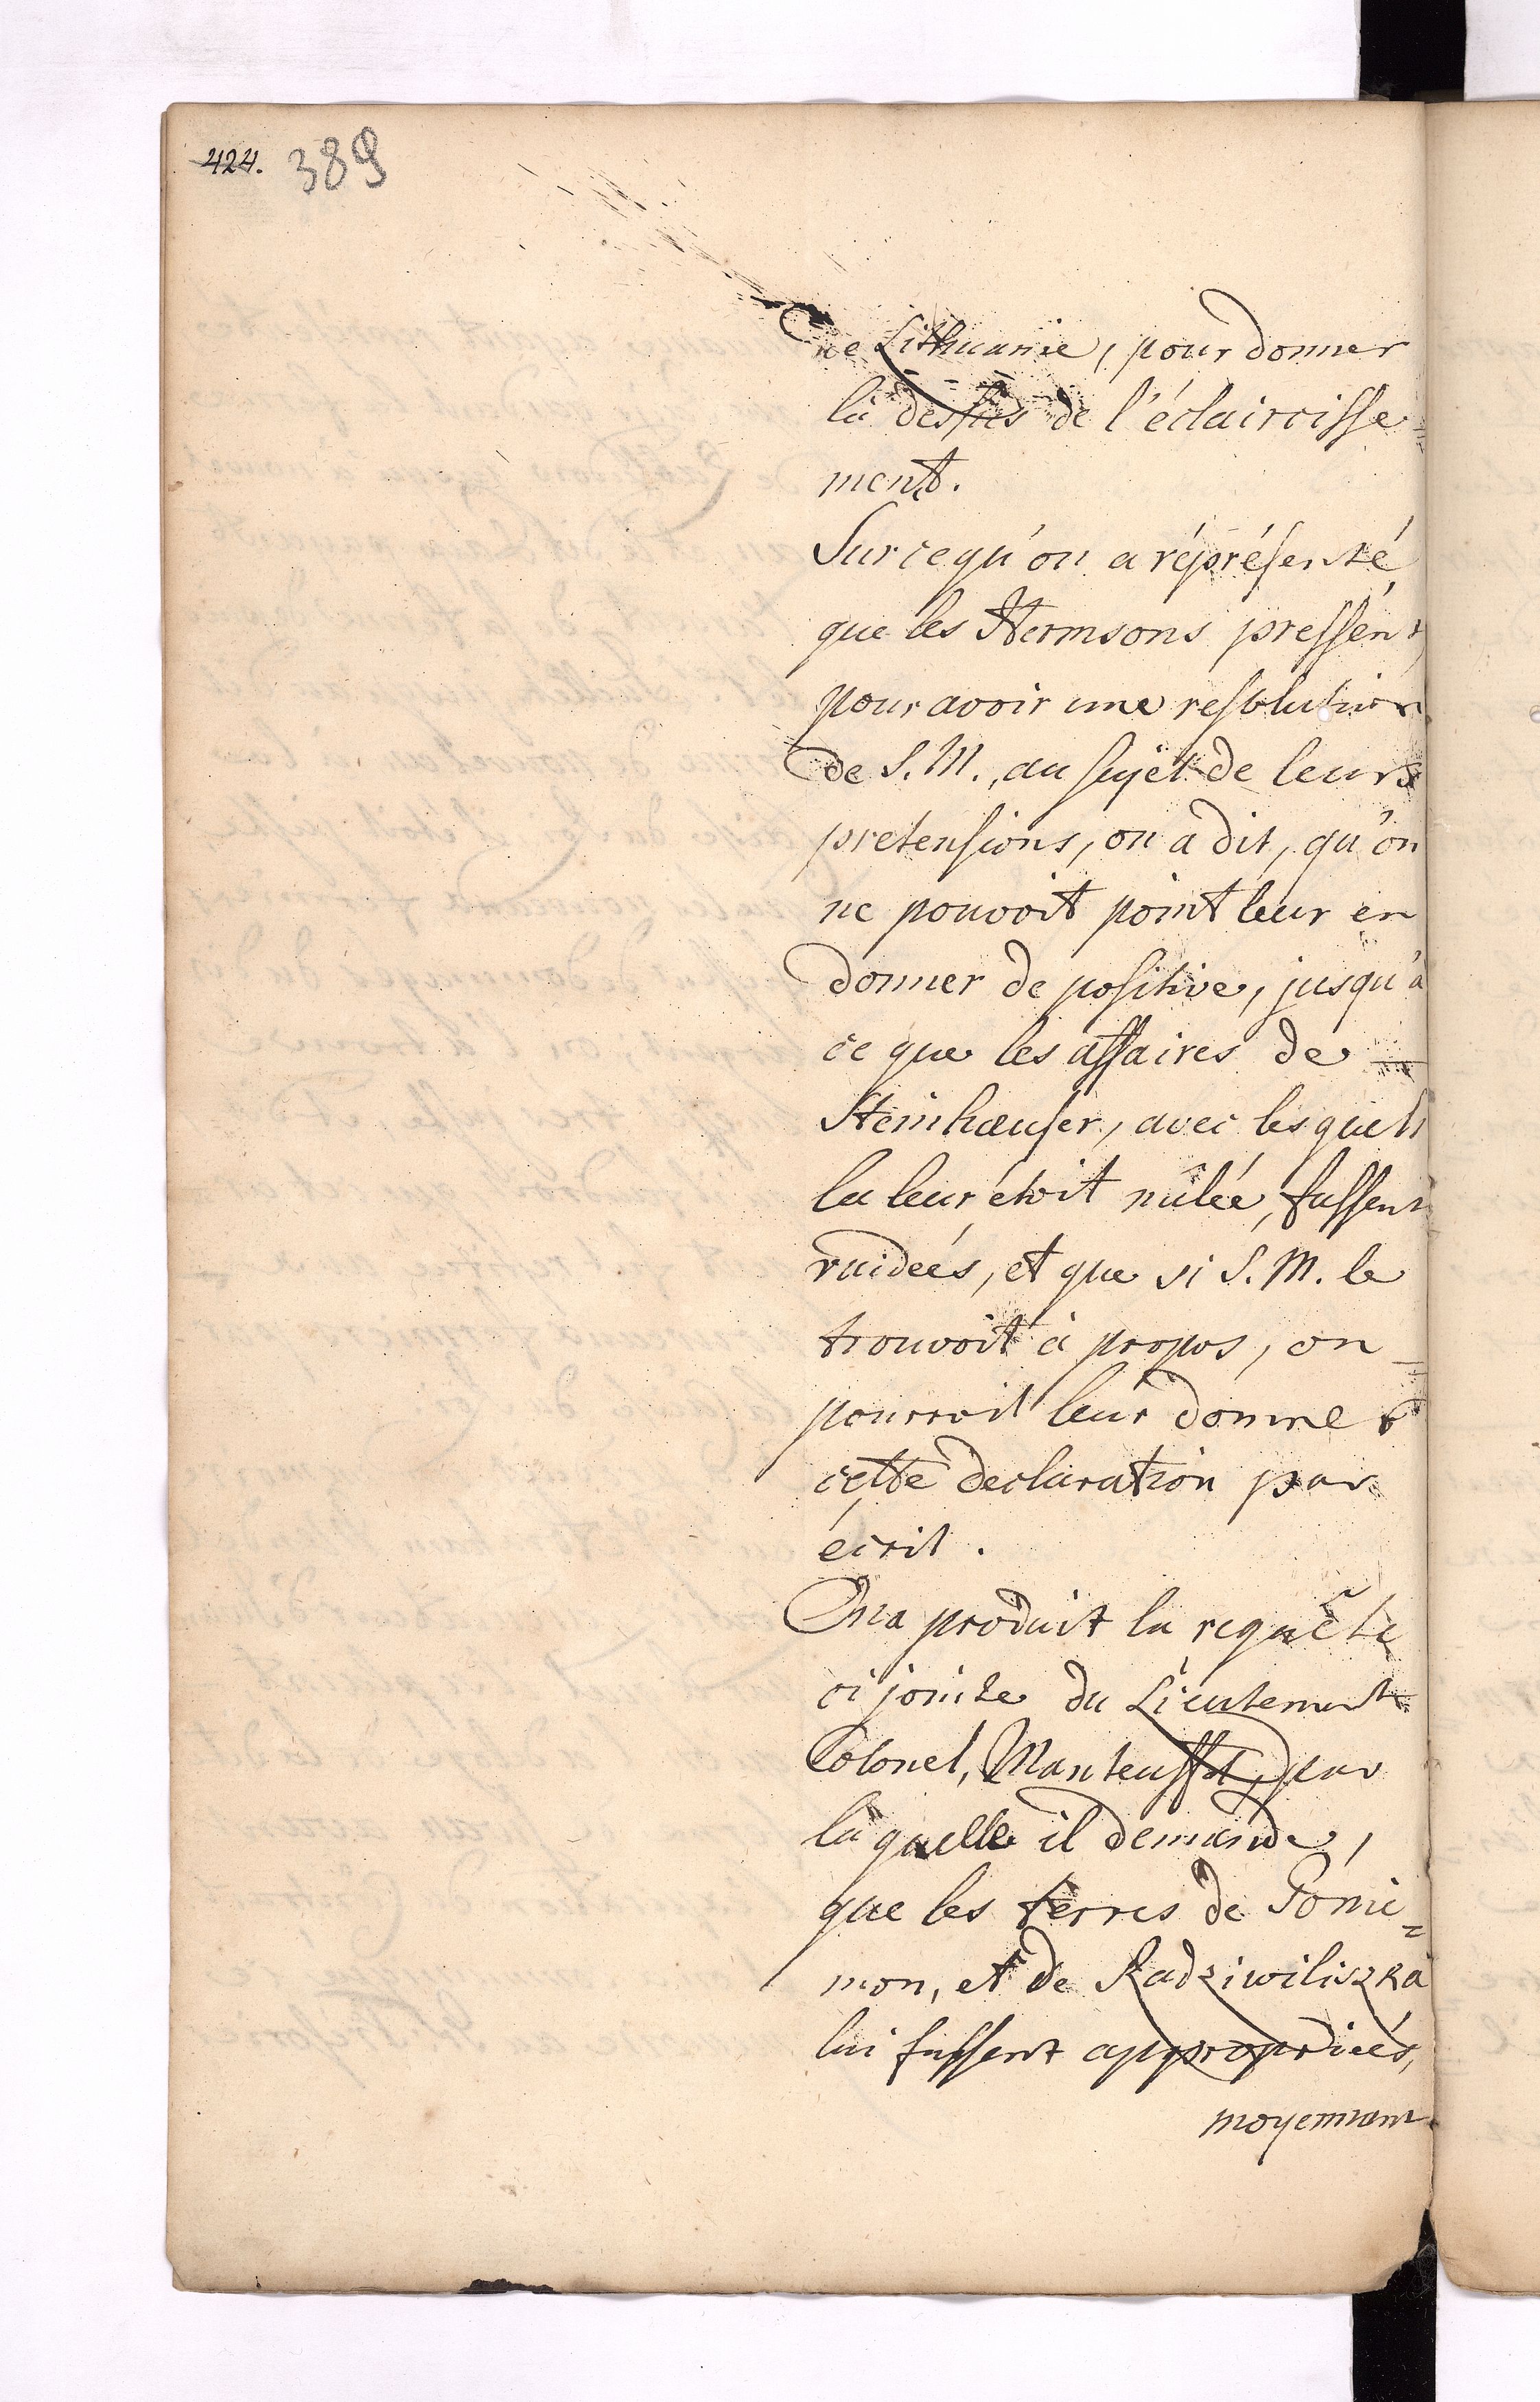 424. 389
de Lithuanie, pour donner
là dessus de l'éclaircisse=
ment.
Sur ce qu'on a réprésenté,
que les Hermsons pressent,
pour avoir une resolution
de S. M., au sujet de leurs
pretensions, on a dit, qu'on
ne pouvoit point leur en
donner de positive, jusqu'à
ce que les affaires de
Steinhæuser, avec lesquels
la leur étoit mêlée, fussent
vuideés, et que si S. M. le
trouvoit à propos, on
pourroit leur donner
cette declaration par
écrit.
On a produit la requête
ci jointe du Lieutenant
Colonel, Manteuffel, par
la quelle il demande,
que les terres de Pomi=
mon, et de Radziwiliszka
lui fussent appropriées,
moyennant